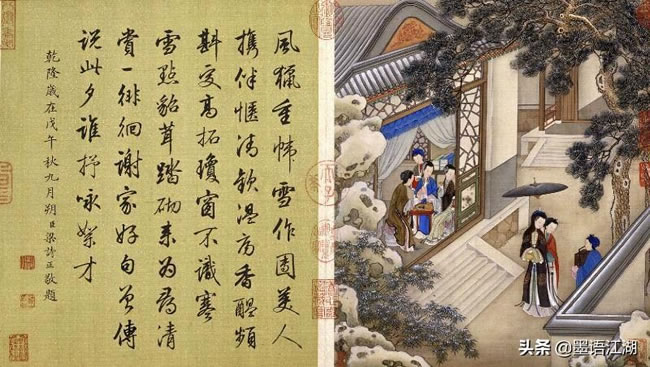 風獵重帏雪作團美人
攜伴惬清歡温房香醞頻
斟处高拓瓊窗不識寒
雪點貂茸踏砌来为尋清
賞一徘徊謝家好句曾傳
説此夕谁抒咏絮才
乾隆歲在戊午秋九月朔臣梁詩正敬題
头条 @墨语江湖